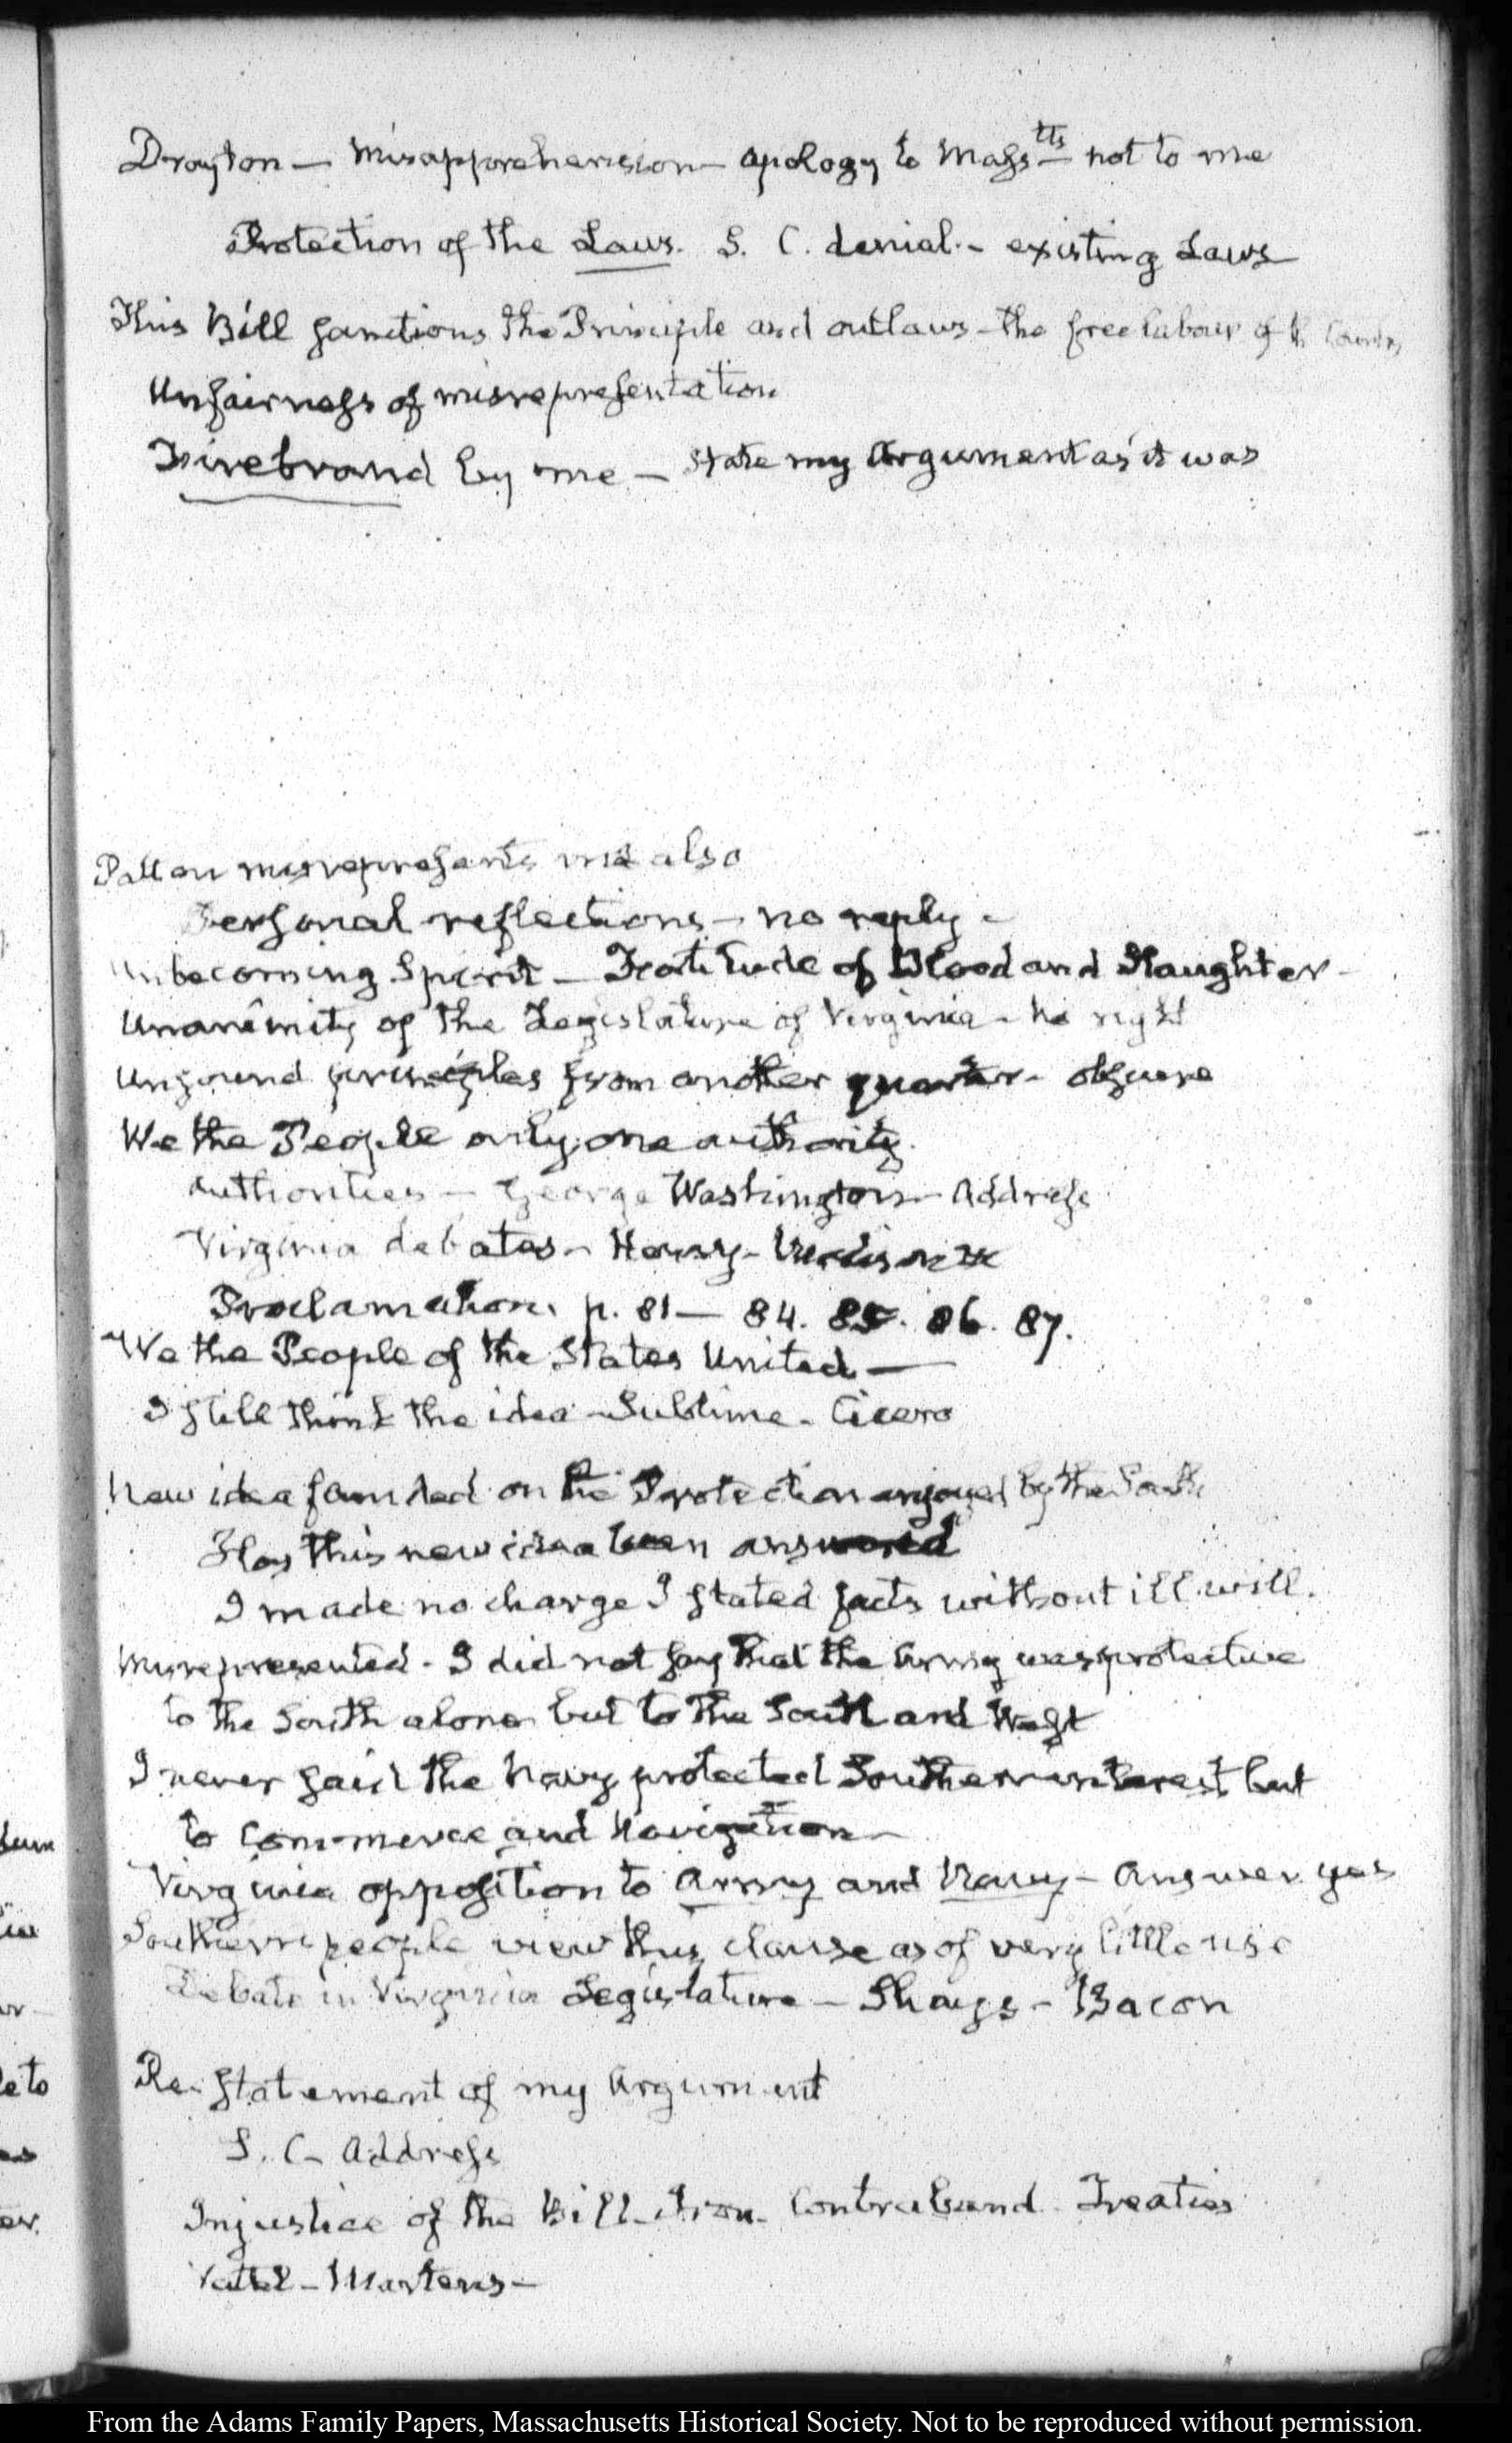 Drayton — misapprehension — apology to Mass.tts — not to me
Protection of the Laws. S. C. denial. — existing Laws
This Bill sanctions the Principle and outlaws the free labour of the Country
Unfairness of misrepresentation
Firebrand by me — State my Argument as it was
Patton misrepresents me also
Personal reflections — no reply —
Unbecoming Spirit — of Blood and Slaughter —
Unanimity of the Legislature of Virginia — no right
Unsound principles from another quarter — obscure
We the People only one authority.
Authorities — George Washington — Address
Virginia debates — Henry — Madison
Proclamation. p. 81 — 84. 85. 86. 87.
We the People of the States United —
I still think the idea Sublime — Cicero
New idea founded on the Protection enjoyed by the South
Has this new idea been answered
I made no charge I stated facts without ill will.
Misrepresented — I did not say that the Army was protective
to the South alone but to the South and West
I never said the Navy protected Southern interest but
to Commerce and Navigation —
Virginia opposition to Army and Navy — Answer yes
Southern people view this clause as of very little use
Debate in Virginia Legislature — Shays — Bacon
Re-statement of my Argument
S. C. Address
Injustice of the Bill — Iron — Contraband — Treaties
Vattel — Martens —
From the Adams Family Papers, Massachusetts Historical Society. Not to be reproduced without permission.